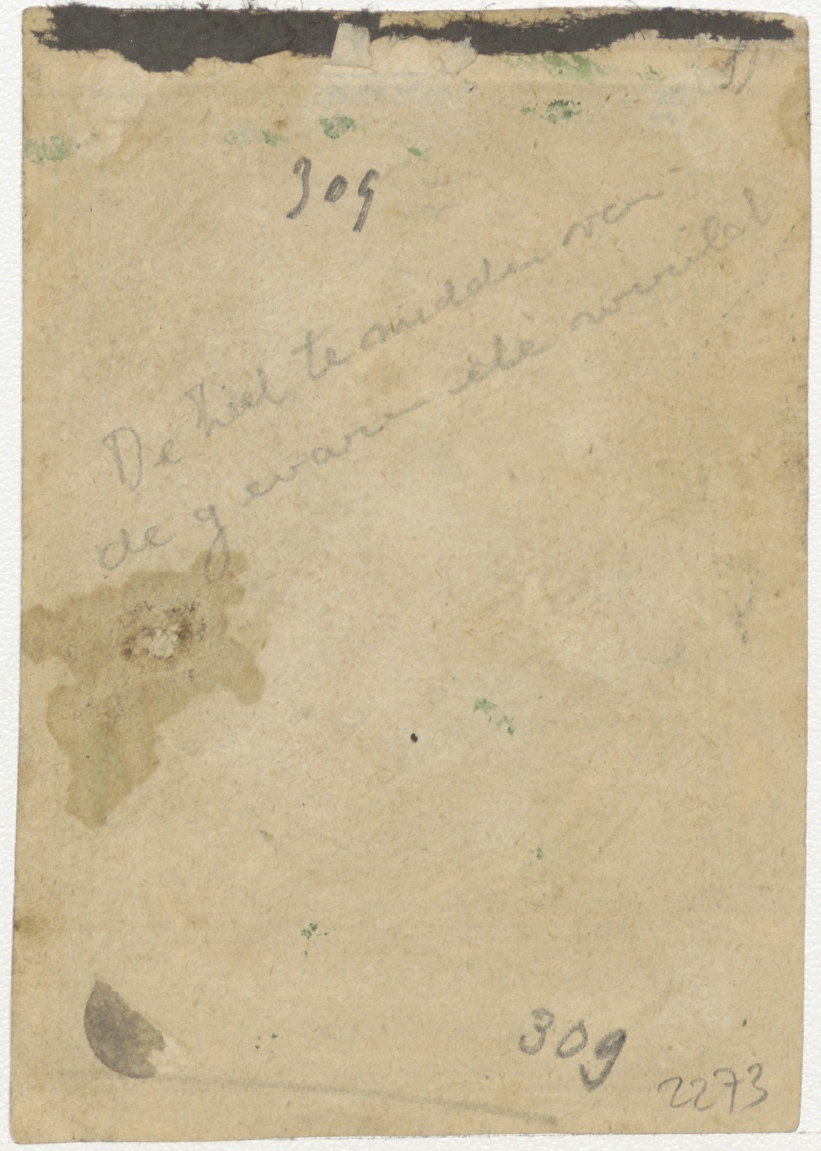 309
De Ziel te midden van
de gevaren der wereld
309
2273